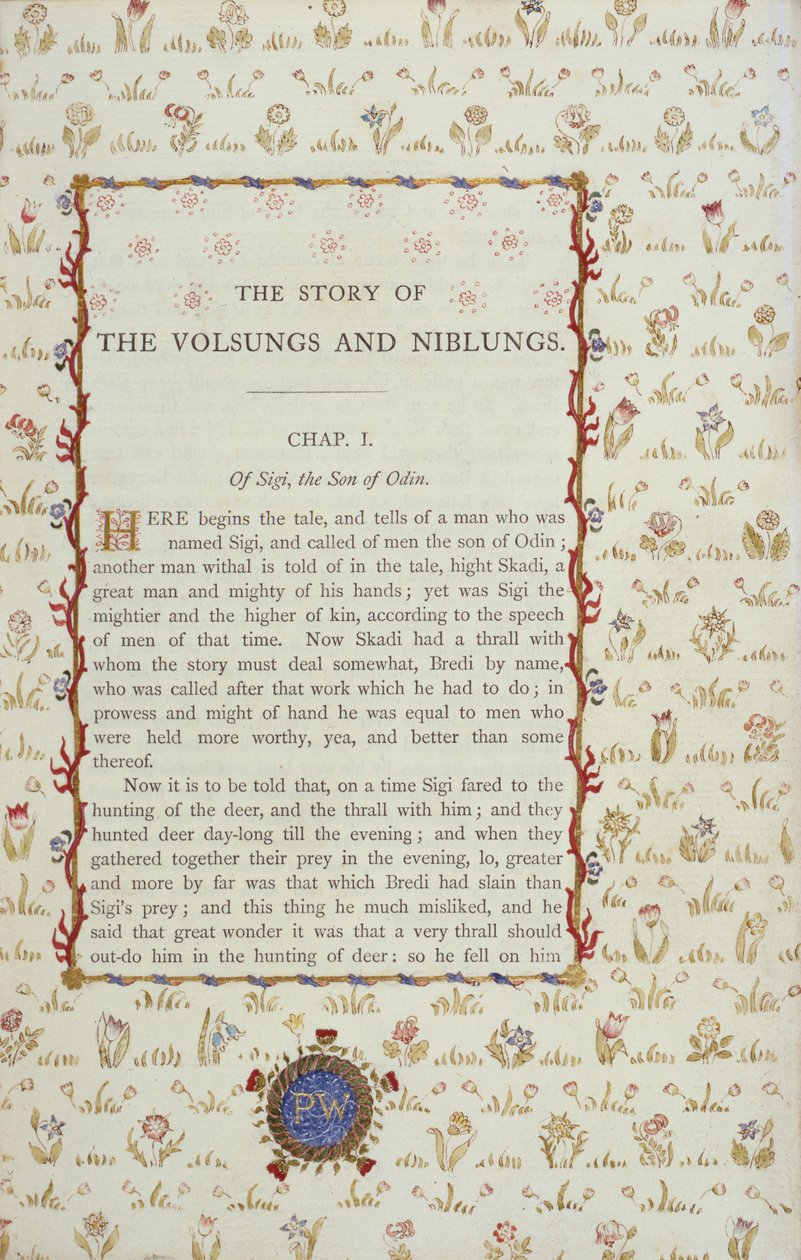 THE STORY OF
THE VOLSUNGS AND NIBLUNGS.
CHAP. I.
Of Sigi, the Son of Odin.
HERE begins the tale, and tells of a man who was
named Sigi, and called of men the son of Odin ;
another man withal is told of in the tale, hight Skadi, a
great man and mighty of his hands ; yet was Sigi the
mightier and the higher of kin, according to the speech
of men of that time. Now Skadi had a thrall with
whom the story must deal somewhat, Bredi by name,
who was called after that work which he had to do ; in
prowess and might of hand he was equal to men who
were held more worthy, yea, and better than some
thereof.
Now it is to be told that, on a time Sigi fared to the
hunting of the deer, and the thrall with him ; and they
hunted deer day-long till the evening ; and when they
gathered together their prey in the evening, lo, greater
and more by far was that which Bredi had slain than
Sigi's prey ; and this thing he much misliked, and he
said that great wonder it was that a very thrall should
out-do him in the hunting of deer : so he fell on him
PW